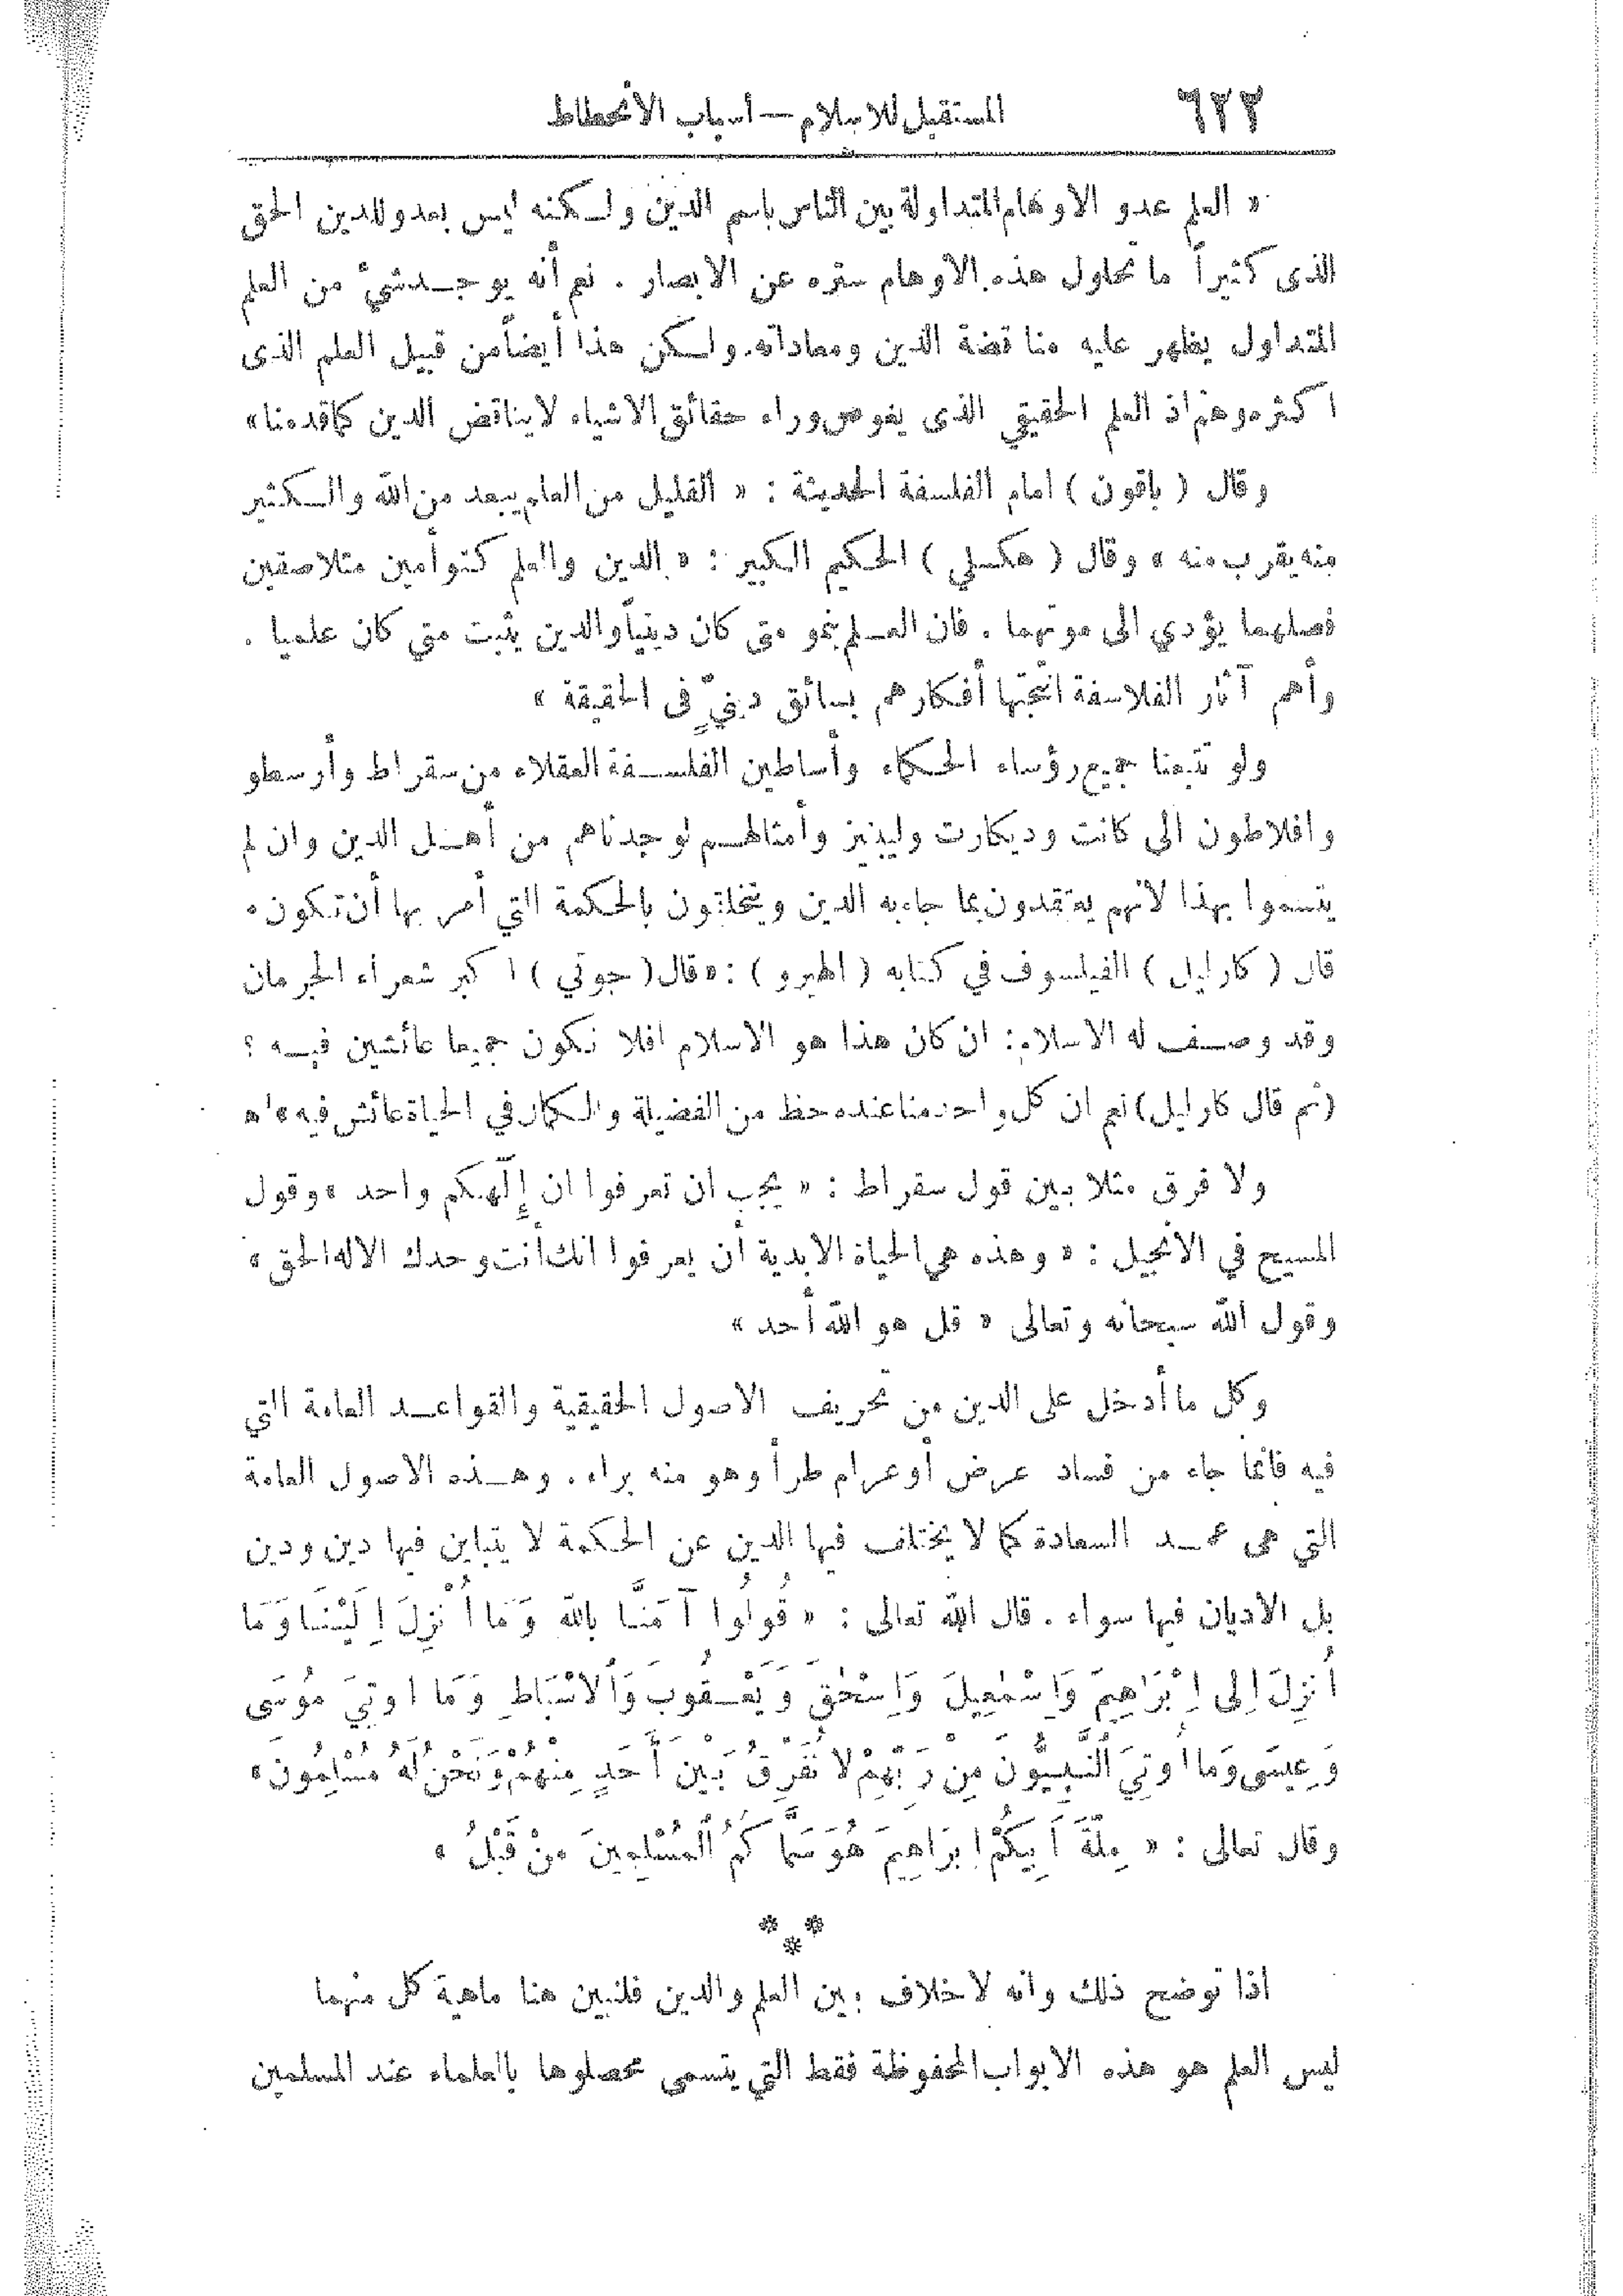 ٦٢٢ المستقبل للاسلام — أسباب الانحطاط
« العلم عدو الاوهام المتداولة بين الناس باسم الدين ولكنه ليس بعدو للدين الحق
الذى كثيراً ما تحاول هذه الاوهام ستره عن الابصار . نعم أنه يوجد شيء من العلم
المتداول يظهر عليه مناقضة الدين ومعاداته . ولكن هذا أيضاً من قبيل العلم الذى
اكثره وهم اذ العلم الحقيقي الذى يغوص وراء حقائق الاشياء لا يناقض الدين كما قدمنا »
وقال ( باقون ) امام الفلسفة الحديثة : « القليل من العلم يبعد من الله والكثير
منه يقرب منه » وقال ( هكسلي ) الحكيم الكبير : « الدين والعلم كتوأمين متلاصقين
فصلهما يؤدي الى موتهما . فان العلم ينمو متى كان دينياً والدين يثبت متى كان علميا .
وأهم آثار الفلاسفة انتجتها أفكارهم بسائق دينيٍّ فى الحقيقة »
ولو تتبعنا جميع رؤساء الحكماء وأساطين الفلسفة العقلاء من سقراط وأرسطو
وافلاطون الى كانت وديكارت وليبنيز وأمثالهم لوجدناهم من أهل الدين وان لم
يتسموا بهذا لانهم يعتقدون بما جاء به الدين ويتخلقون بالحكمة التي أمر بها أن تكون .
قال ( كارليل ) الفيلسوف في كتابه ( الهيرو ) : « قال ( جوتي ) اكبر شعراء الجرمان
وقد وصف له الاسلام : ان كان هذا هو الاسلام افلا نكون جميعا عائشين فيه ؟
( ثم قال كارليل ) نعم ان كل واحد منا عنده حظ من الفضيلة والكمال في الحياة عائش فيه » اه
ولا فرق مثلا بين قول سقراط : « يجب ان تعرفوا ان إلٰهكم واحد » وقول
المسيح في الانجيل : « وهذه هي الحياة الابدية أن يعرفوا انك أنت وحدك الاله الحق »
وقول الله سبحانه وتعالى « قل هو الله أحد »
وكل ما أدخل على الدين من تحريف الاصول الحقيقية والقواعد العامة التي
فيه فانما جاء من فساد عرض أو عرام طرأ وهو منه براء . وهذه الاصول العامة
التي هى عمد السعادة كما لا يختلف فيها الدين عن الحكمة لا يتباين فيها دين ودين
بل الاديان فيها سواء . قال الله تعالى : « قُولُوا آمَنَّا بِاللهِ وَمَا أُنْزِلَ إِلَيْنَا وَمَا
أُنْزِلَ إِلى إِبْرَاهِيمَ وَإِسْمٰعِيلَ وَإِسْحٰقَ وَيَعْقُوبَ وَالْاسْبَاطِ وَمَا اوتِيَ مُوسَى
وَعِيسَى وَمَا أُوتِيَ النَّبِيُّونَ مِنْ رَبِّهِمْ لَا نُفَرِّقُ بَيْنَ أَحَدٍ مِنْهُمْ وَنَحْنُ لَهُ مُسْلِمُونَ »
وقال تعالى : « مِلَّةَ أَبِيكُمْ إِبرَاهِيمَ هُوَ سَمَّاكُمُ الْمُسْلِمِينَ مِنْ قَبْلُ »
* * *
اذا توضح ذلك وانه لا خلاف بين العلم والدين فلنبين هنا ماهية كل منهما
ليس العلم هو هذه الابواب المحفوظة فقط التي يتسمى محصلوها بالعلماء عند المسلمين